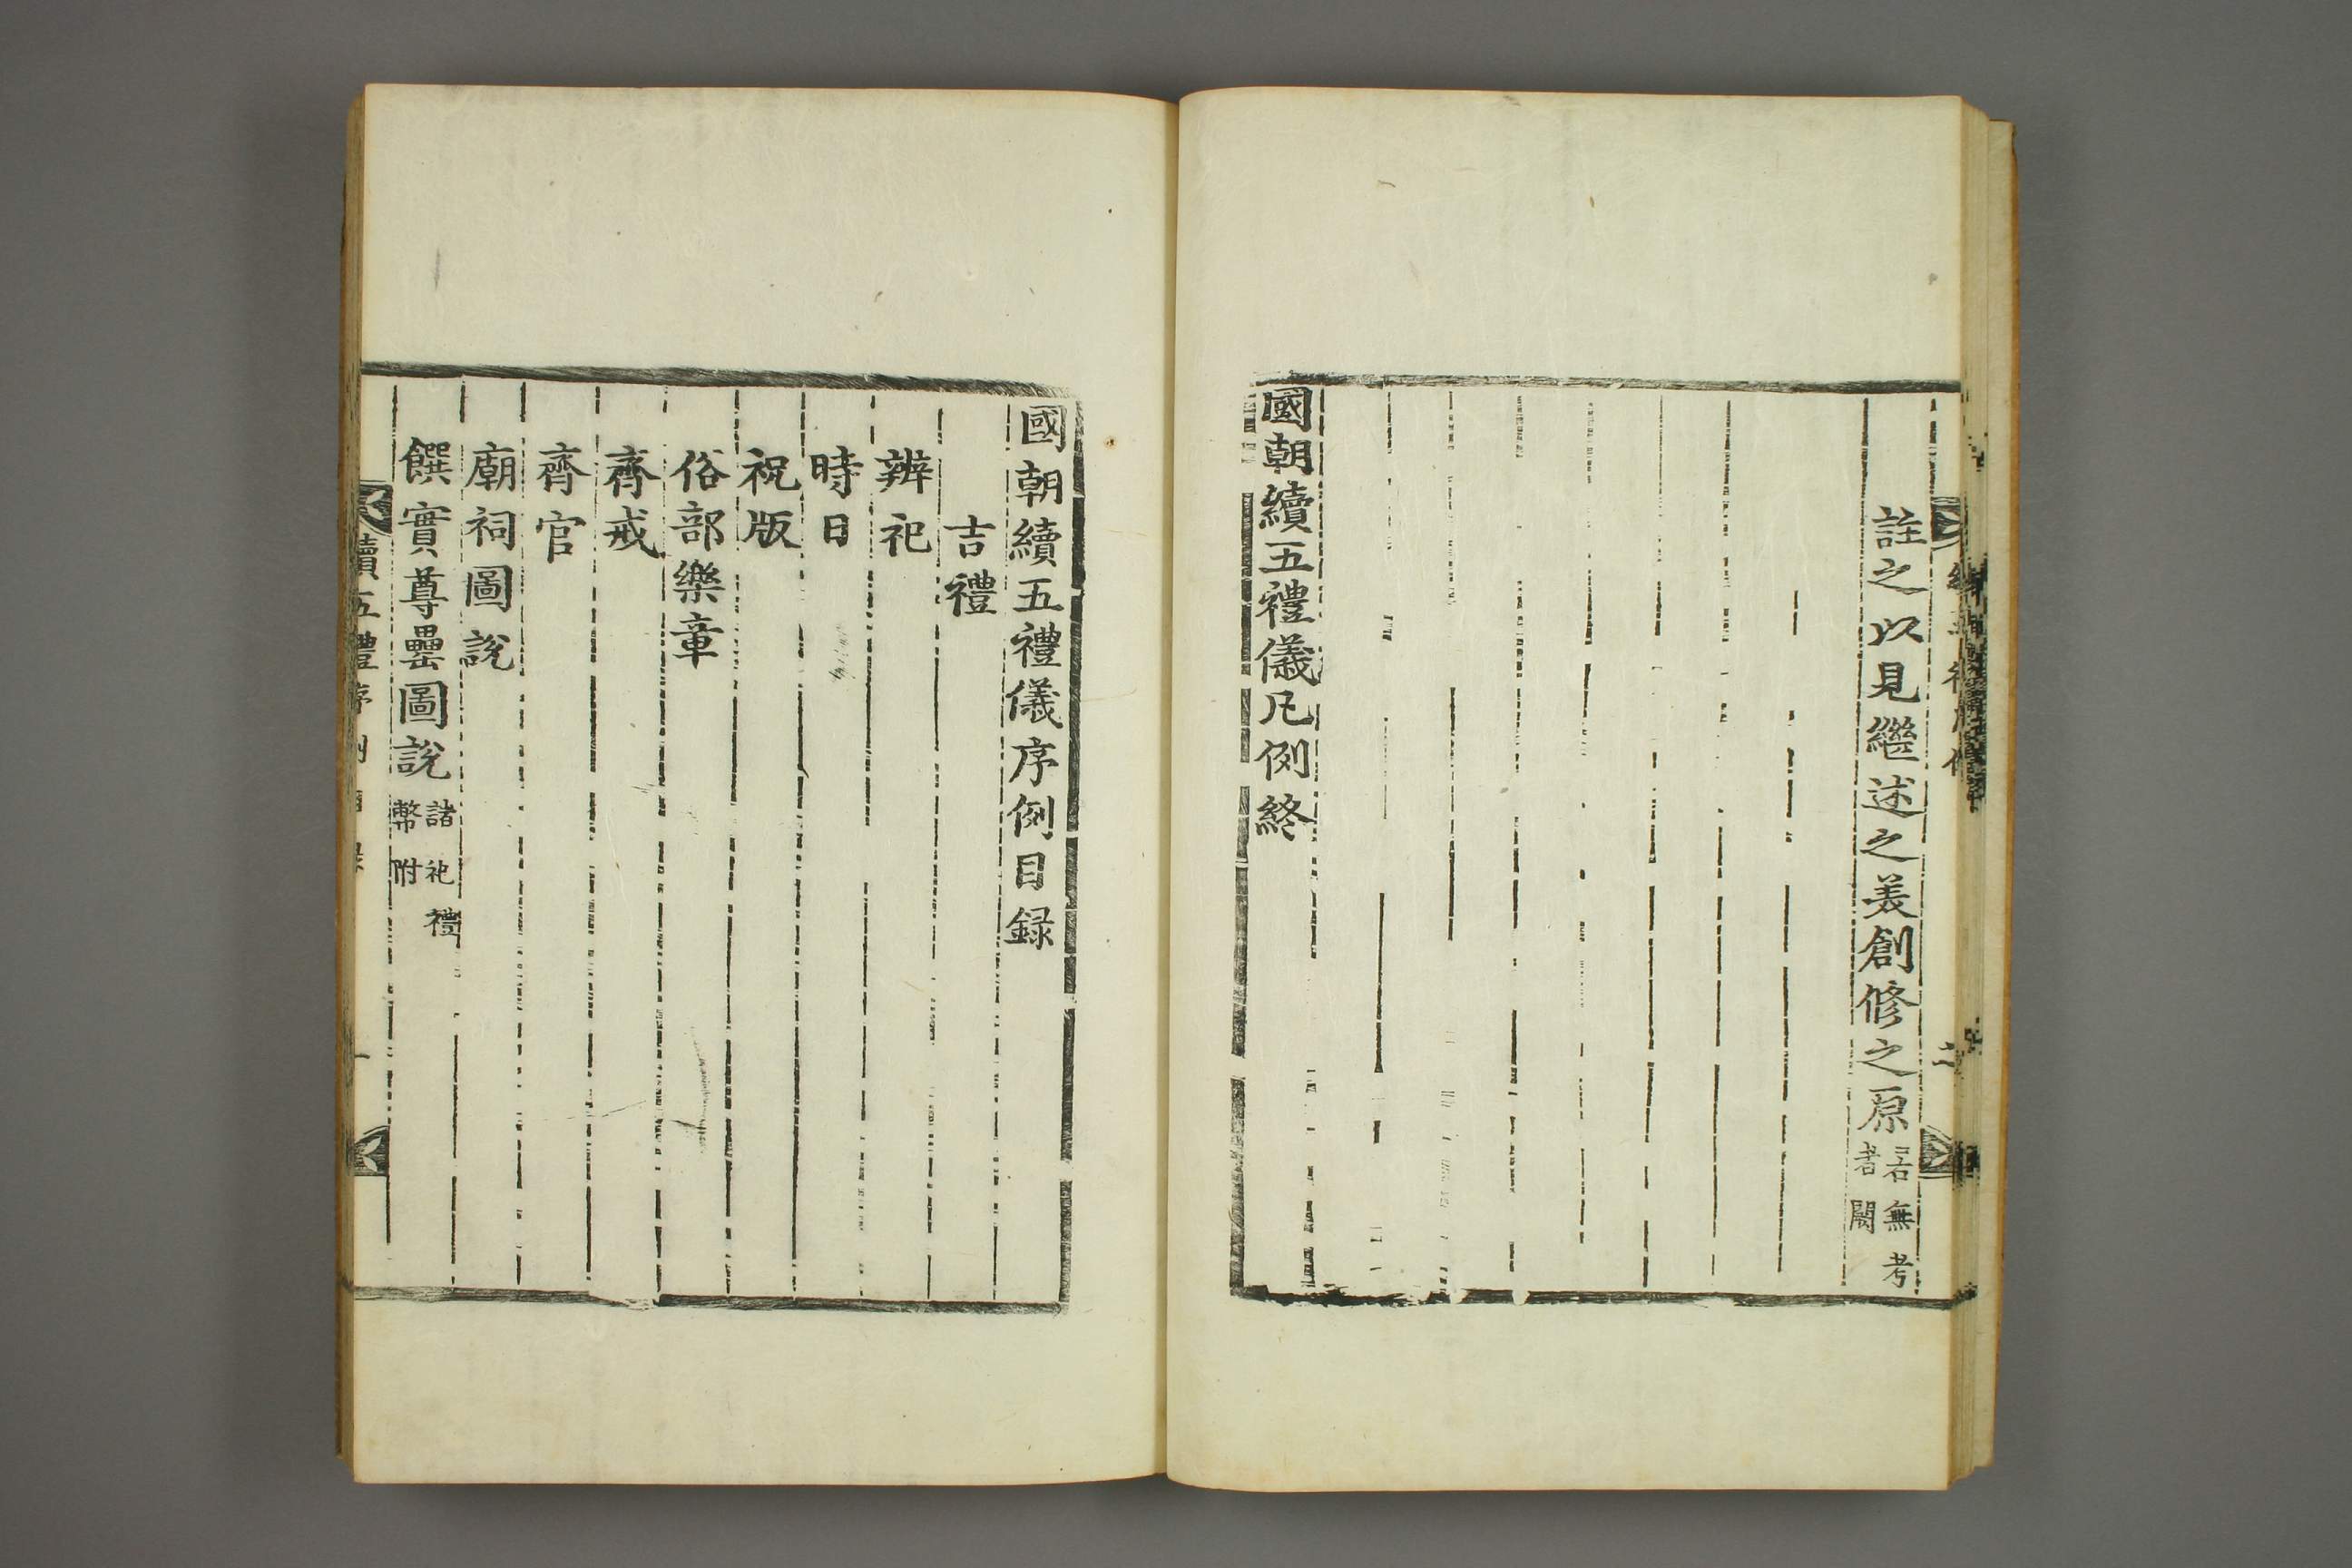 註之以見繼述之美創修之原若無考者闕
國朝續五禮儀凡例終
國朝續五禮儀序例目録
吉禮
辨祀
時日
祝版
俗部樂章
齊戒
齊官
廟祠圖說
饌實尊罍圖說諸祀禮幣附
續五禮序例目録 一